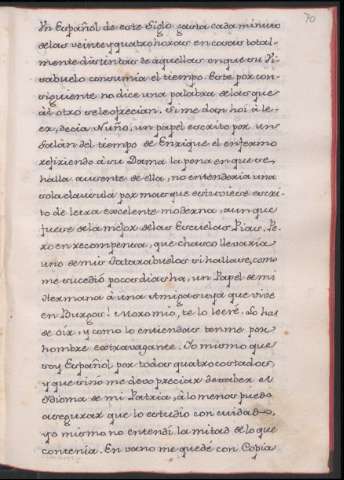 70
Un Español de este Siglo gasta cada minuto
de las veinte y quatro horas en cosas total-
mente distintas de aquellas en que su Vi-
sabuelo consumia el tiempo. Este por con-
siguiente no dice una palabra de las que
al otro se le ofrecian. Si me dan hoi à le-
er, decia Nuño, un papel escrito por un
Galán del tiempo de Enrique el enfermo
refiriendo à su Dama la pena en que se
halla ausente de ella, no entenderia una
sola clausula por mas que estuviese escri-
to de letra excelente moderna, aunque
fuese de la mejor de las Escuelas Pias. Pe-
ro en recompensa, que chasco llevaria
uno de mis Tatarabuelos si hallase, como
me sucedió pocos dias ha, un Papel de mi
Hermana à una Amiga suya que vive
en Burgos! Moro mio, te lo leeré. Lo has
de oir, y como lo entiendas tenme por
hombre extravagante. Yo mismo que
soy Español por todos quatro costados,
y que sino me devo preciar de saber el
Idioma de mi Patria, à lo menos puedo
asegurar que lo estudio con cuidado,
yo mismo no entendí la mitad de lo que
contenia. En vano me quedé con Copia